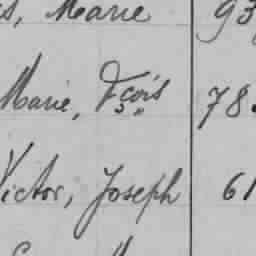 s, Marie 93
Marie, Fçois 78
Victor, Joseph 61